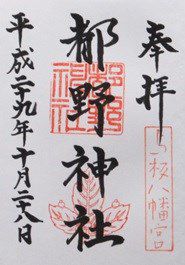 奉拝
八幡宮
都野神社
平成二十九年十月二十八日